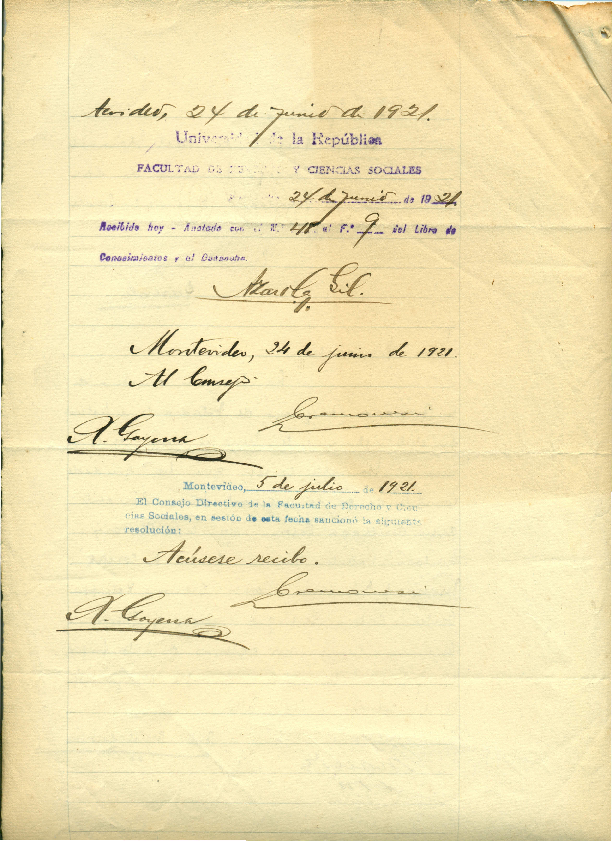 24 de junio de 1921.
Universidad de la República
FACULTAD DE Y CIENCIAS SOCIALES
24 de junio de 1921
Recibido hoy - Anotado con el N.° 48 al F.° 9 del Libro de
Conocimientos y al
Azarola Gil.
Montevideo, 24 de junio de 1921.
Al Consejo
A. Goyena
Montevideo, 5 de julio de 1921.
El Consejo Directivo de la Facultad de Derecho y Cien-
cias Sociales, en sesión de esta fecha sancionó la siguiente
resolución:
Acúsese recibo.
A. Goyena